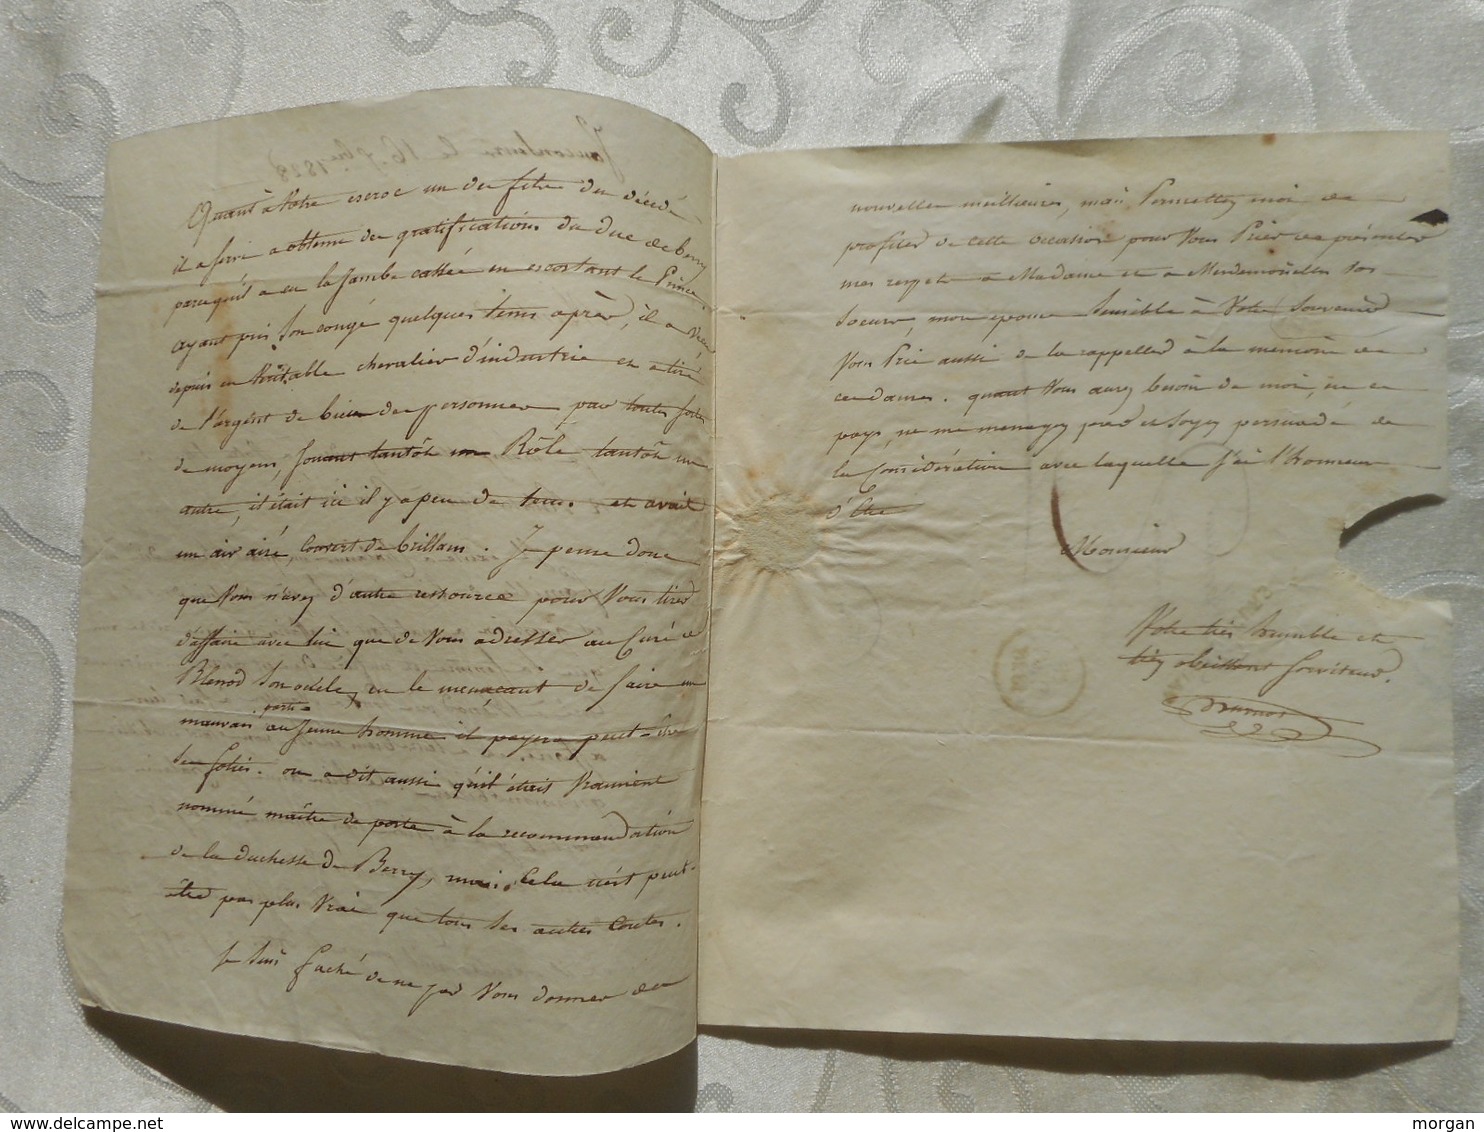 Quant à Votre escroc un des frères du décédé
il a servi a obtenu des gratifications du duc de berry
parcequ'il a eu la Jambe cassée en escortant le Prince.
ayant pris Son congé quelques tems après, il a vécu
depuis en Véritable chevalier d'industrie et a tiré
de l'argent de bien des personnes par toutes sortes
de moyens, Jouant tantôt un Rôle tantôt un
autre, il était ici il y a peu de tems. et avait
un air aisé, couvert de brillans. Je pense donc
que Vous n'avez d'autre ressource pour Vous tirer
d'affaire avec lui que de Vous adresser au Curé de
Blenod Son oncle, en le menaçant de faire un
mauvais parti au Jeune homme il payera peut-être
Ses folies. on a dit aussi qu'il était Vraiment
nommé maître de poste à la recommandation
de la duchesse de Berry, mais Cela n'est peut-
être pas plus Vrai que tous Ses autres Contes.
Je Suis faché de ne pas Vous donner des
nouvelles meilleures, mais Permettez moi de
profiter de cette occasion pour Vous Prier de présenter
mes respects à Madame et à Mesdemoiselles vos
Soeurs, mon épouse Sensible à Votre Souvenir
Vous Prie aussi de la rappeller à la mémoire de
ces dames. quand Vous aurez besoin de moi, en ce
pays, ne me menagez pas et Soyez persuadé de
la Considération avec laquelle J'ai l'honneur
d'être
Monsieur
Votre très humble et
très obeissant Serviteur.
morgan